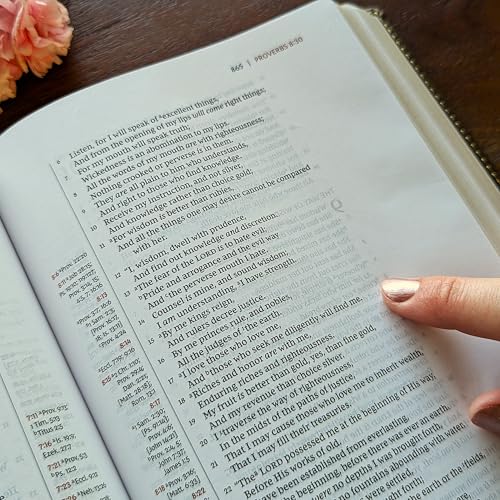 865 | PROVERBS 8:30
6 Listen, for I will speak of ᵃexcellent things,
And from the opening of my lips will come right things;
7 For my mouth will speak truth;
Wickedness is an abomination to my lips.
8 All the words of my mouth are with righteousness;
Nothing crooked or perverse is in them.
9 They are all plain to him who understands,
And right to those who find knowledge.
10 Receive my instruction, and not silver,
And knowledge rather than choice gold;
11 ᵃFor wisdom is better than rubies,
And all the things one may desire cannot be compared
with her.
12 "I, wisdom, dwell with prudence,
And find out knowledge and discretion.
13 ᵃThe fear of the LORD is to hate evil;
ᵇPride and arrogance and the evil way
And ᶜthe perverse mouth I hate.
14 Counsel is mine, and sound wisdom;
I am understanding, ᵃI have strength.
15 ᵃBy me kings reign,
And rulers decree justice.
16 By me princes rule, and nobles,
All the judges of ¹the earth.
17 ᵃI love those who love me,
And ᵇthose who seek me diligently will find me.
18 ᵃRiches and honor are with me,
Enduring riches and righteousness.
19 My fruit is better than gold, yes, than fine gold,
And my revenue than choice silver.
20 I ¹traverse the way of righteousness,
In the midst of the paths of justice,
21 That I may cause those who love me to inherit wealth,
That I may fill their treasuries.
22 "Theᵃ LORD possessed me at the beginning of His way,
Before His works of old.
have been established from everlasting,
the beginning, before there was ever an earth.
there were no depths I was brought forth,
fountains abounding with water.
were settled,
8:6 ᵃProv. 22:20
8:11 ᵃJob 28:15;
Ps. 19:10; 119:127;
8:13
ᵃProv. 3:7; 16:6
ᵇ1 Sam. 2:3;
ᶜProv. 4:24
8:14
ᵃEccl. 7:19; 9:16
8:15 ᵃ2 Chr. 1:10;
Prov. 29:4;
Dan. 2:21;
[Matt. 28:18];
Rom. 13:1
8:17
ᵃ1 Sam. 2:30;
[Ps. 91:14];
Prov. 4:6;
[John 14:21]
James 1:5
8:18 ᵃProv. 3:16;
[Matt. 6:33]
8:22